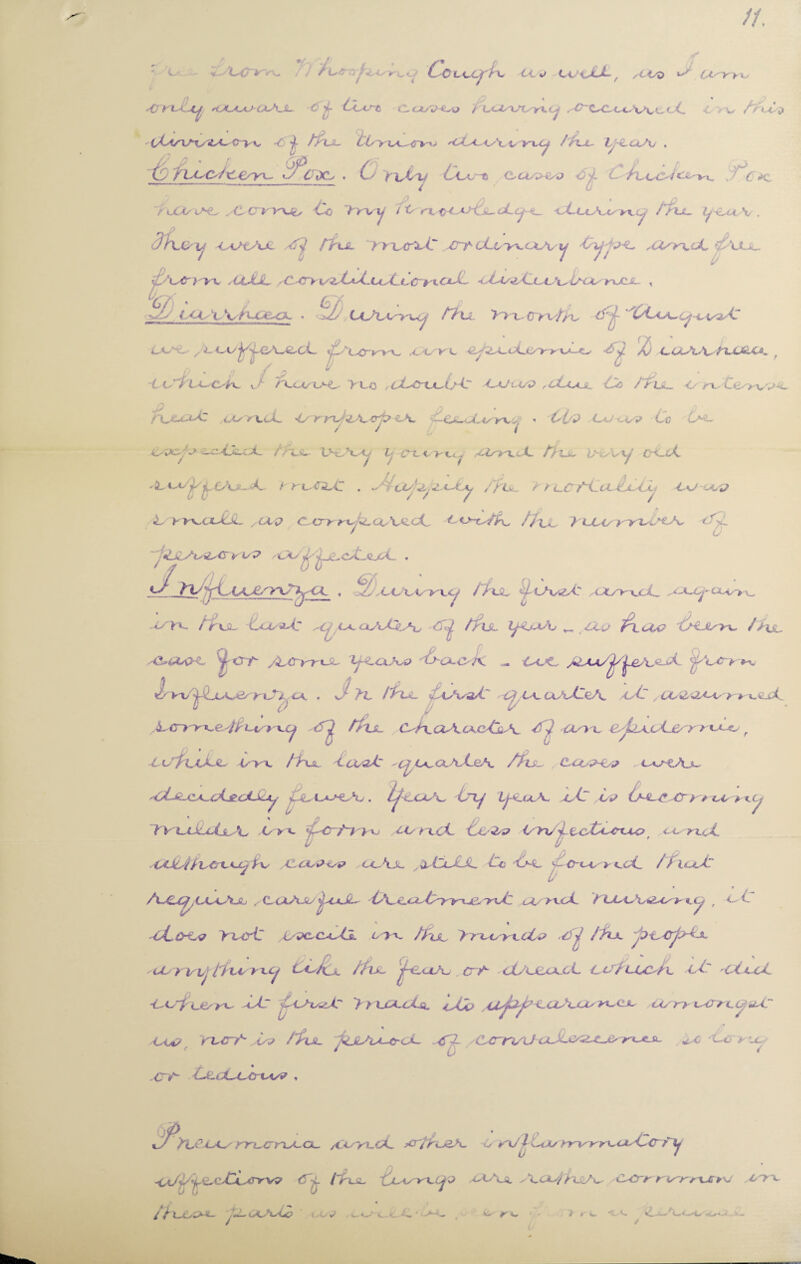 11.
free from Whooping Cough as well, as I am
only aware of two cases having occurred in this
division of the Union during the year.
Chicken Pox. Only two cases of Chicken Pox
have come to my knowledge during the year.
They were of the most ordinary type and free
from all constitutional disturbance.
Diarrhœa. During the month of August
we suffered from an epidemic of Diarrhœa,
which I have no doubt was due to the intense
heat and improper feeding. As was to be
expected the very young and the very old
suffered most. Happily the mortality was
small as compared with the number of
persons affected.
Influenza. During the first and again
in the last quarter of the year _ as has been the
case for some years back _ we suffered from
Influenza. In the first quarter it assumed
something of the character of an epidemic,
while in the last quarter the cases were
decidedly fewer. Year by year it is becoming
milder in form and less infectious, and
although cases are still to be found that
require careful treatment and nursing, it
does not excite in the minds of the people
anything like the fear or dread which it did
when it first made its appearance amongst
us, nor is the period of convalescence so long
or tedious.
Pneumonia and other inflammatory
affections of the lungs are rather common in
these parts as will be